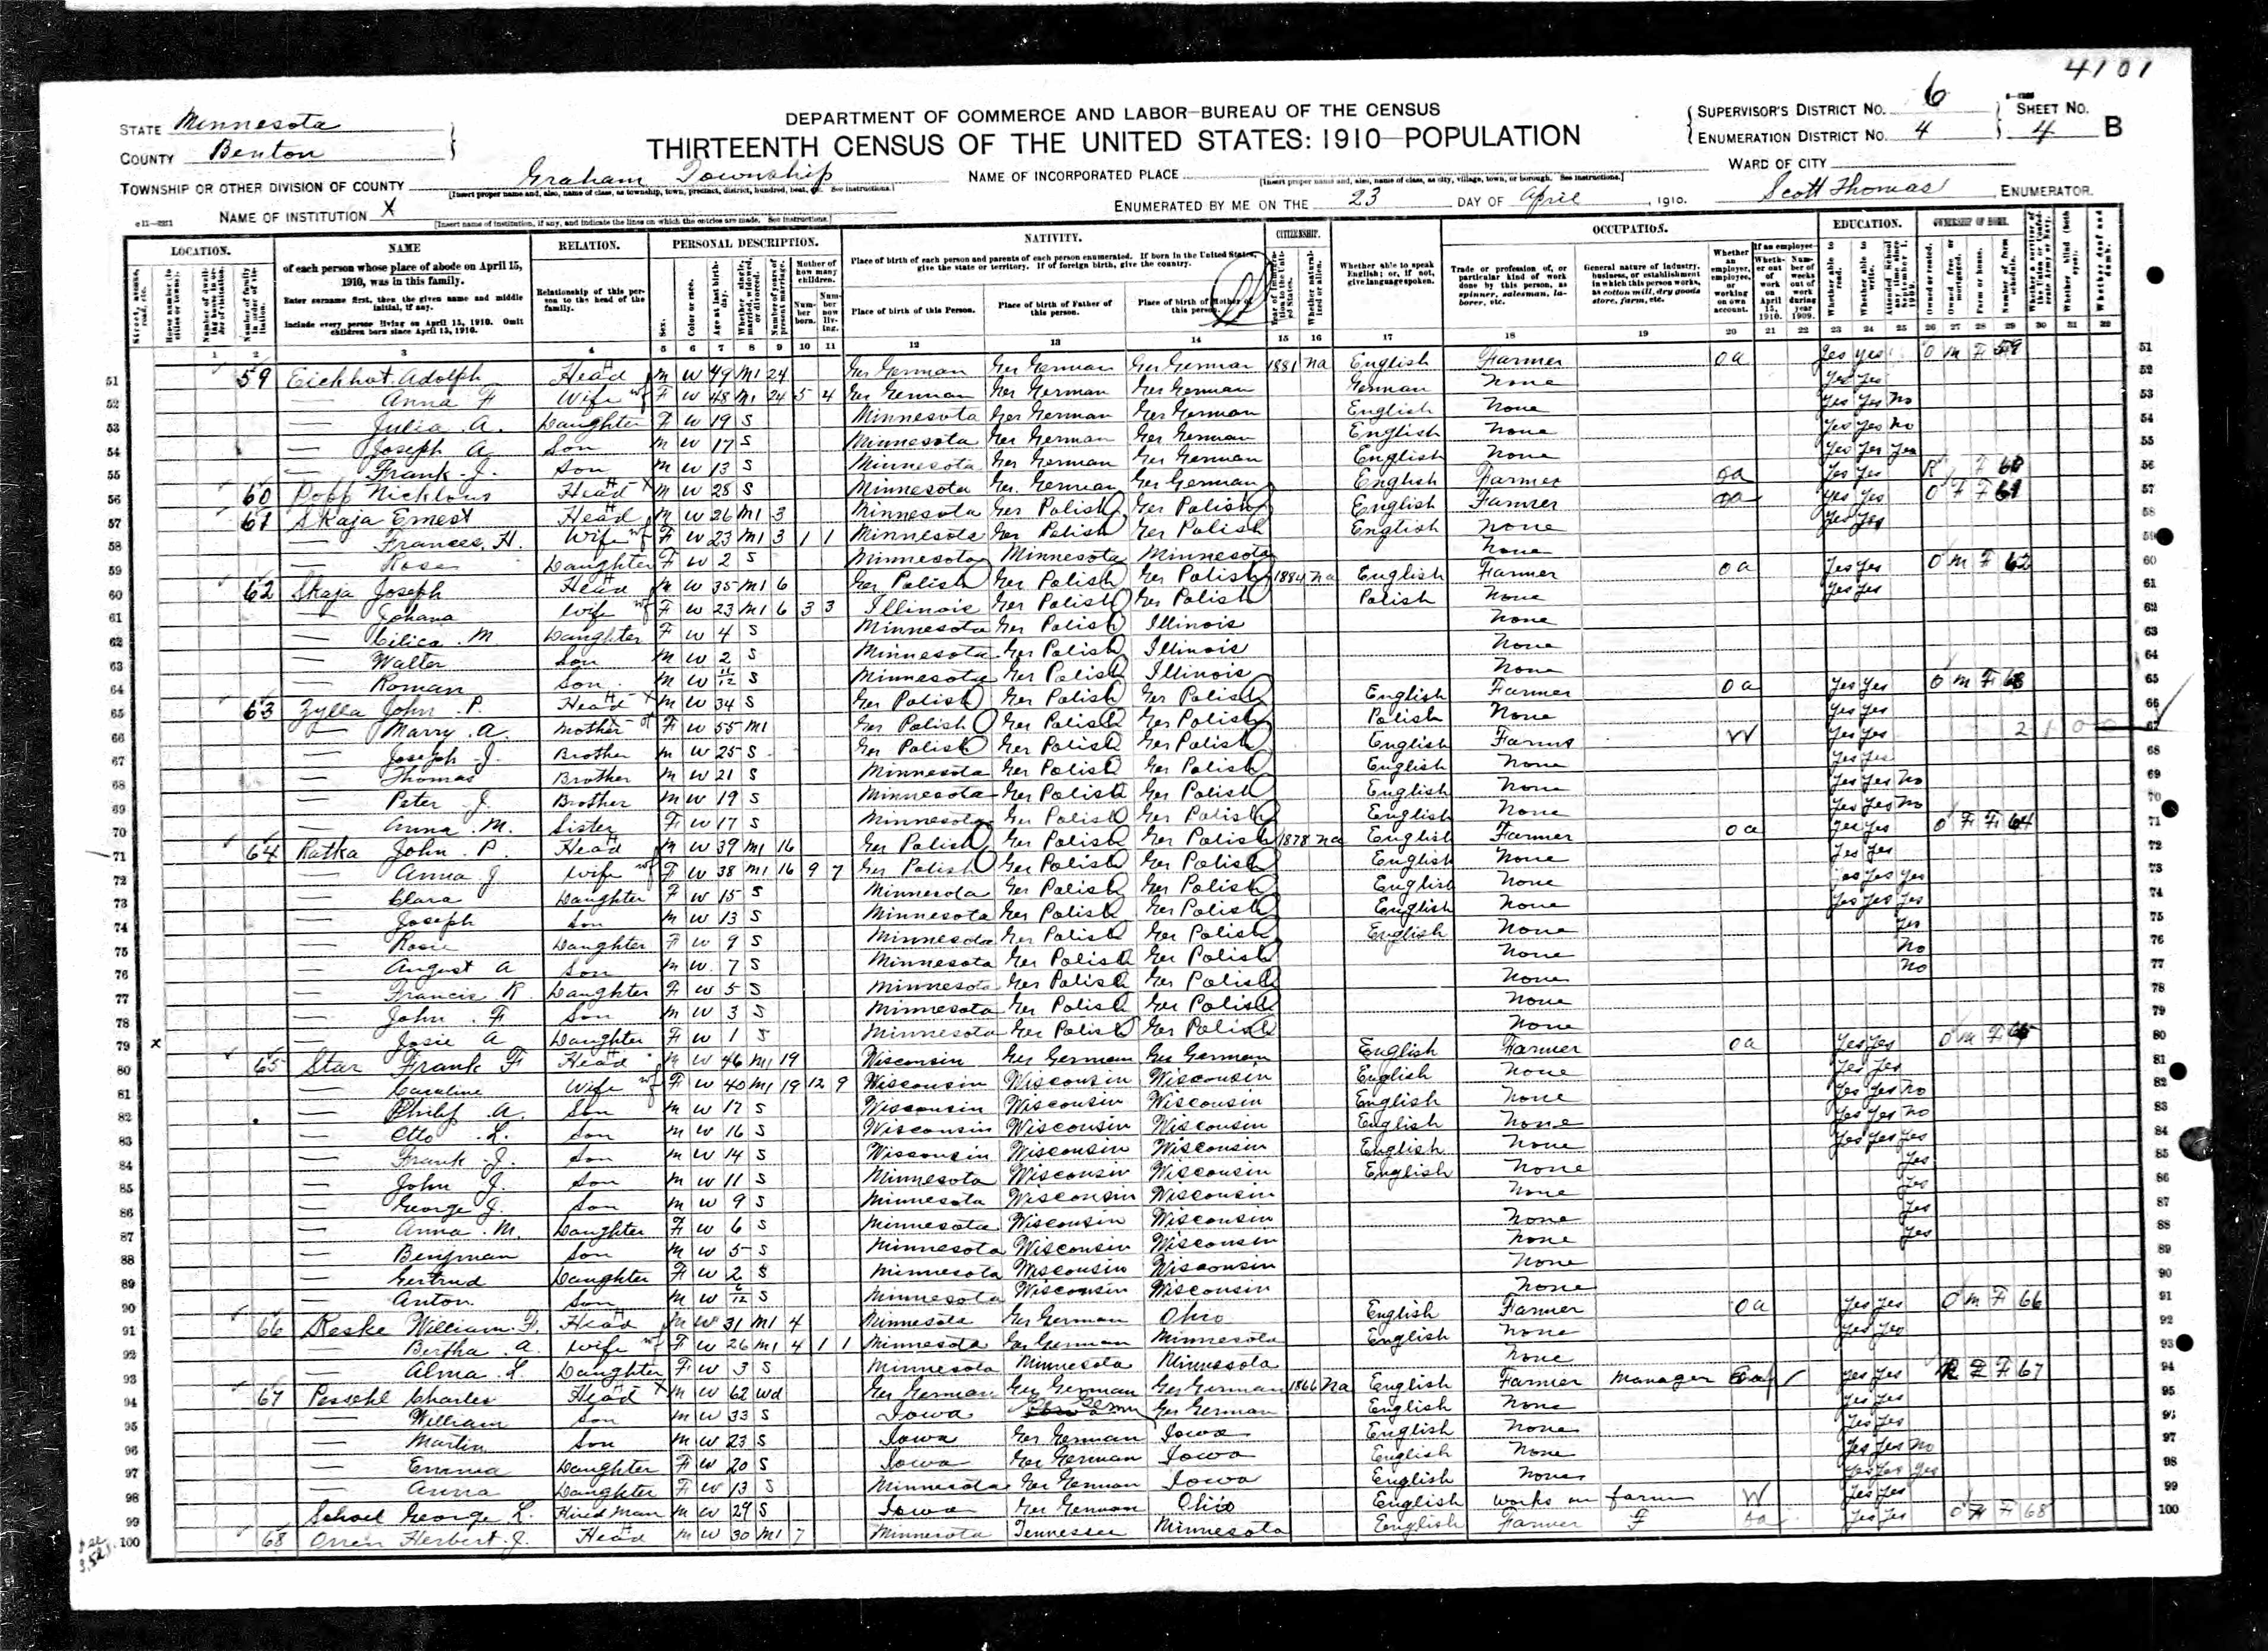 4101
STATE Minnesota
COUNTY Benton
DEPARTMENT OF COMMERCE AND LABOR—BUREAU OF THE CENSUS
THIRTEENTH CENSUS OF THE UNITED STATES: 1910—POPULATION
SUPERVISOR'S DISTRICT NO. 6
ENUMERATION DISTRICT NO. 4
SHEET NO. 4 B
TOWNSHIP OR OTHER DIVISION OF COUNTY Graham Township
NAME OF INCORPORATED PLACE
WARD OF CITY
NAME OF INSTITUTION X
ENUMERATED BY ME ON THE 23 DAY OF April, 1910. Scott Thomas ENUMERATOR.
LOCATION. NAME RELATION. PERSONAL DESCRIPTION. NATIVITY. CITIZENSHIP. OCCUPATION. EDUCATION. OWNERSHIP OF HOME.
of each person whose place of abode on April 15, 1910, was in this family.
Enter surname first, then the given name and middle initial, if any.
Include every person living on April 15, 1910. Omit children born since April 15, 1910.
Relationship of this person to the head of the family.
Place of birth of each person and parents of each person enumerated. If born in the United States, give the state or territory. If of foreign birth, give the country.
Place of birth of this Person. Place of birth of Father of this person. Place of birth of Mother of this person.
Whether able to speak English; or, if not, give language spoken.
Trade or profession of, or particular kind of work done by this person, as spinner, salesman, laborer, etc.
General nature of industry, business, or establishment in which this person works, as cotton mill, dry goods store, farm, etc.
1 2 3 4 5 6 7 8 9 10 11 12 13 14 15 16 17 18 19 20 21 22 23 24 25 26 27 28 29 30 31 32
51 59 Adolph Head M W 49 M1 24 Ger German Ger German Ger German 1881 na English Farmer oa yes yes O M F 59
52 — Anna F Wife F W 48 M1 24 5 4 Ger German Ger German Ger German German None yes yes
53 — Julia A. Daughter F W 19 S Minnesota Ger German Ger German English None yes yes no
54 — Joseph A Son M W 17 S Minnesota Ger German Ger German English None yes yes no
55 — Frank J. Son M W 13 S Minnesota Ger German Ger German English None yes yes yes
56 60 Popp Nicklous Head M W 28 S Minnesota Ger. German Ger German English Farmer oa yes yes R F 60
57 61 Skaja Ernest Head M W 26 M1 3 Minnesota Ger Polish Ger Polish English Farmer oa yes yes O F F 61
58 — Frances. H. Wife F W 23 M1 3 1 1 Minnesota Ger Polish Ger Polish English None yes yes
59 — Rose Daughter F W 2 S Minnesota Minnesota Minnesota None
60 62 Skaja Joseph Head M W 35 M1 6 Ger Polish Ger Polish Ger Polish 1884 na English Farmer oa yes yes O M F 62
61 — Johana Wife F W 23 M1 6 3 3 Illinois Ger Polish Ger Polish Polish None yes yes
62 — M Daughter F W 4 S Minnesota Ger Polish Illinois None
63 — Walter Son M W 2 S Minnesota Ger Polish Illinois None
64 — Roman Son M W 11/12 S Minnesota Ger Polish Illinois None
65 63 Zylla John P. Head M W 34 S Ger Polish Ger Polish Ger Polish English Farmer oa yes yes O M F 63
66 — Marry. A. Mother F W 55 M1 Ger Polish Ger Polish Ger Polish Polish None yes yes
67 — Joseph J. Brother M W 25 S Ger Polish Ger Polish Ger Polish English W yes yes 2 1 0 0
68 — Thomas Brother M W 21 S Minnesota Ger Polish Ger Polish English None yes yes
69 — Peter J. Brother M W 19 S Minnesota Ger Polish Ger Polish English None yes yes no
70 — Anna. M. Sister F W 17 S Minnesota Ger Polish Ger Polish English None yes yes no
71 64 Ratka John. P. Head M W 39 M1 16 Ger Polish Ger Polish Ger Polish 1878 na English Farmer oa yes yes O F F 64
72 — Anna J Wife F W 38 M1 16 9 7 Ger Polish Ger Polish Ger Polish English None yes yes
73 — Clara Daughter F W 15 S Minnesota Ger Polish Ger Polish English None yes yes yes
74 — Joseph Son M W 13 S Minnesota Ger Polish Ger Polish English None yes yes yes
75 — Rosie Daughter F W 9 S Minnesota Ger Polish Ger Polish English None yes
76 — August A Son M W 7 S Minnesota Ger Polish Ger Polish None No
77 — Francis R Daughter F W 5 S Minnesota Ger Polish Ger Polish None no
78 — John. F Son M W 3 S Minnesota Ger Polish Ger Polish None
79 X — Josie A Daughter F W 1 S Minnesota Ger Polish Ger Polish None
80 65 Star Frank F Head M W 46 M1 19 Wisconsin Ger German Ger German English Farmer oa yes yes O M F 65
81 — Caroline Wife F W 40 M1 19 12 9 Wisconsin Wisconsin Wisconsin English None yes yes
82 — Philip A. Son M W 17 S Wisconsin Wisconsin Wisconsin English None yes yes no
83 — Otto L. Son M W 16 S Wisconsin Wisconsin Wisconsin English None yes yes no
84 — Frank J. Son M W 14 S Wisconsin Wisconsin Wisconsin English None yes yes yes
85 — John J. Son M W 11 S Minnesota Wisconsin Wisconsin English None yes
86 — George J. Son M W 9 S Minnesota Wisconsin Wisconsin None yes
87 — Anna. M. Daughter F W 6 S Minnesota Wisconsin Wisconsin None yes
88 — Benjman Son M W 5 S Minnesota Wisconsin Wisconsin None yes
89 — Gertrud Daughter F W 2 S Minnesota Wisconsin Wisconsin None
90 — Anton Son M W 6/12 S Minnesota Wisconsin Wisconsin None
91 66 Reske William. F. Head M W 31 M1 4 Minnesota Ger German Ohio English Farmer oa yes yes O M F 66
92 — Bertha. A. Wife F W 26 M1 4 1 1 Minnesota Ger German Minnesota English None yes yes
93 — Alma. L. Daughter F W 3 S Minnesota Minnesota Minnesota None
94 67 Peschel Charles Head M W 62 Wd Ger German Ger German Ger German 1866 Na English Farmer Manager yes yes R F 67
95 — William Son M W 33 S Iowa Ger German English None yes yes
96 — Martin Son M W 23 S Iowa Ger German Iowa English None yes yes
97 — Emma Daughter F W 20 S Iowa Ger German Iowa English None yes yes no
98 — Anna Daughter F W 13 S Minnesota Ger German Iowa English None yes yes yes
99 George L. Hired Man M W 29 S Iowa Ger German Ohio English works on farm W yes yes
100 68 Orren Herbert J. Head M W 30 M1 7 Minnesota Tennessee Minnesota English Farmer oa yes yes O F 68